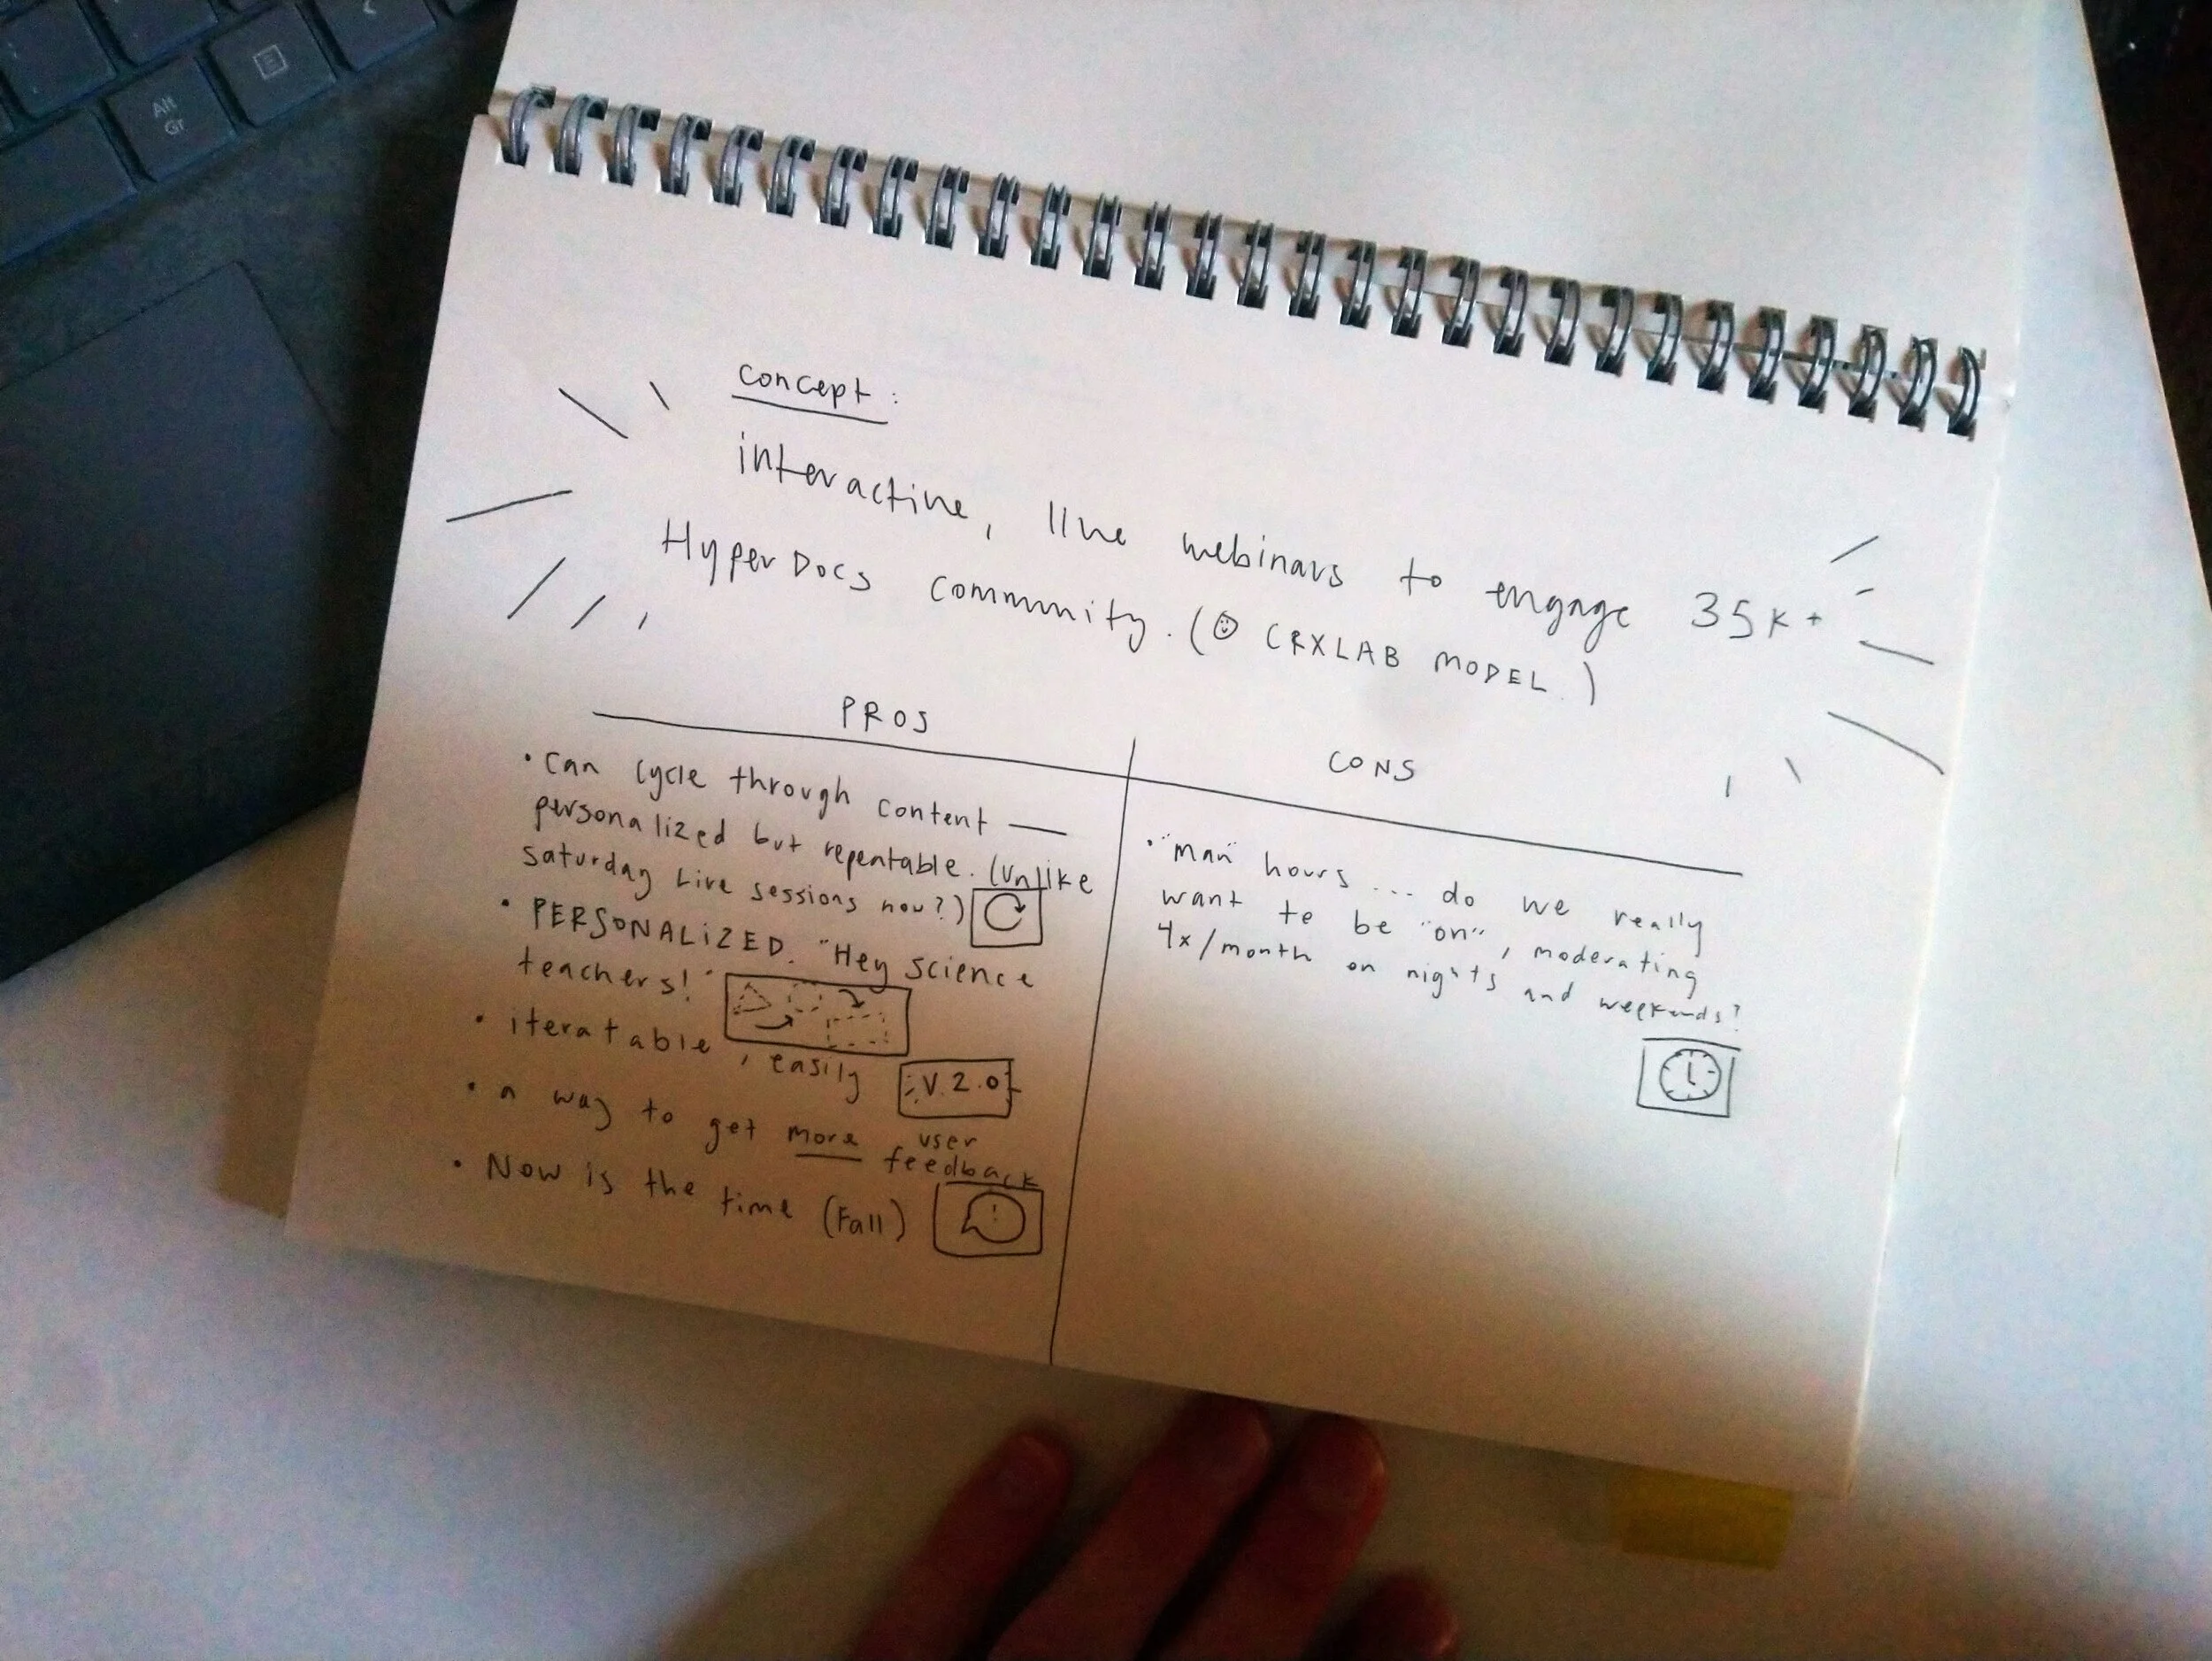 Alt
Gr
concept:
interactive, live webinars to engage 35K+
HyperDocs community. (CRXLAB MODEL.)
PROS
• can cycle through content —
personalized but repeatable. (Unlike
Saturday Live sessions now?)
• PERSONALIZED. "Hey science
teachers!"
• iteratable, easily
V.2.0
• a way to get more user
feedback
• Now is the time (Fall)
!
CONS
• "man" hours... do we really
want to be "on", moderating
4x/month on nights and weekends?